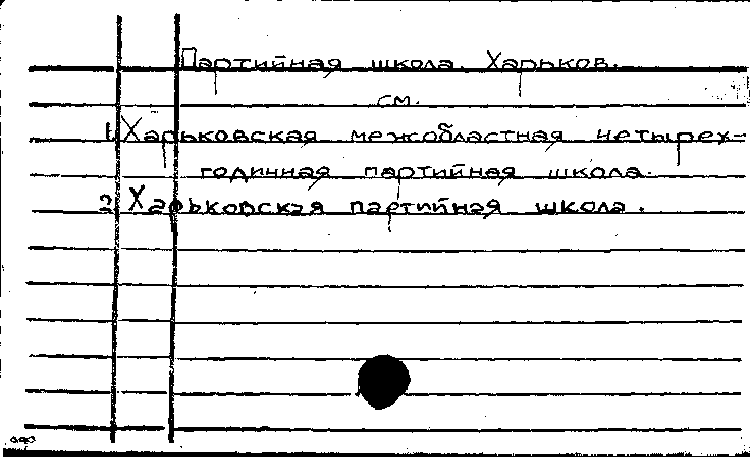 Партийная школа. Харьков.
см.
1. Харьковская межобластная четырех-
годичная партийная школа.
2. Харьковская партийная школа.